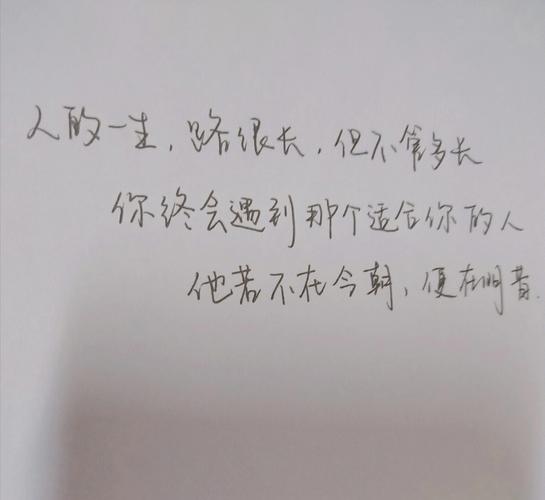 人的一生，路很长，但不管多长
你终会遇到那个适合你的人
他若不在今朝，便在明昔.